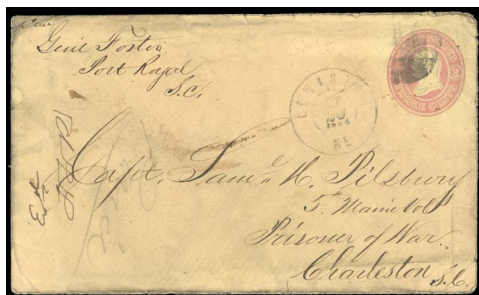 Care
Genl Foster
Port Royal
S.C.
LEWISTON
1864
ME
Capt. Saml H. Pilsbury
5th Maine Vols
Prisoner of War
Charleston S.C.